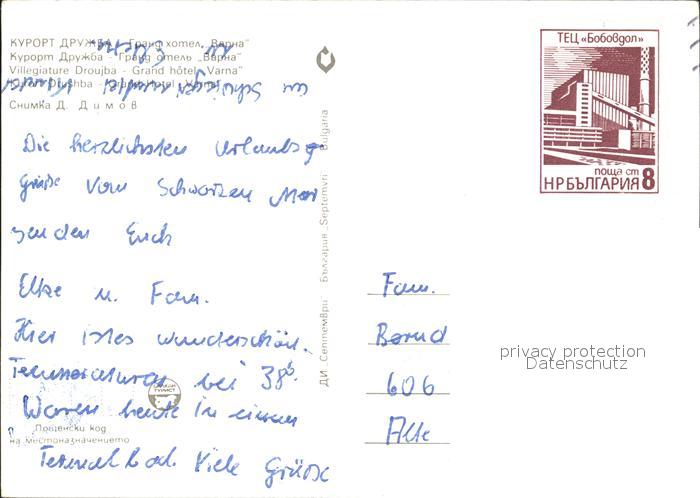 КУРОРТ ДРУЖБА - Гранд хотел „Варна"
Курорт Дружба - Гранд отель „Варна"
Villegiature Droujba - Grand hôtel „Varna"
Снимка Д. Димов
Die herzlichsten Urlaubs-
grüße vom Schwarzen Meer
senden Euch
Elke u. Fam.
Hier ist es wunderschön.
Temperaturen bei 38°.
Waren heute in einem
Thermalbad. Viele Grüße
Пощенски код
на местоназначението
ДИ „Септември" България „Septemvri" Bulgaria
ТЕЦ «Бобовдол»
поща ст
НРБЪЛГАРИЯ 8
Fam.
Bernd
606
Alte
privacy protection
Datenschutz